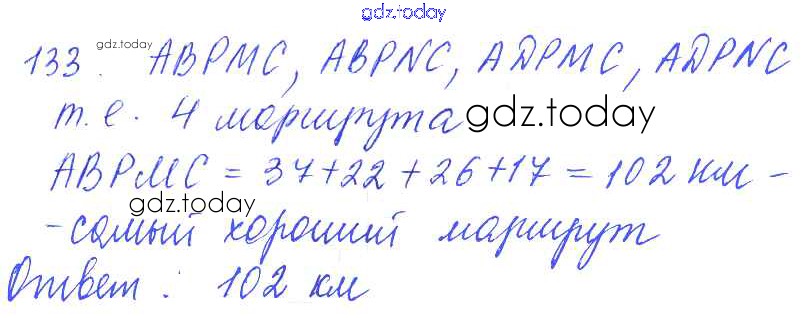 gdz.today
133. АВРМС, АВРNС, АДРМС, АДРNС
gdz.today
т.е. 4 маршрута
gdz.today
АВРМС = 37+22+26+17 = 102 км -
gdz.today
- самый хороший маршрут
Ответ: 102 км